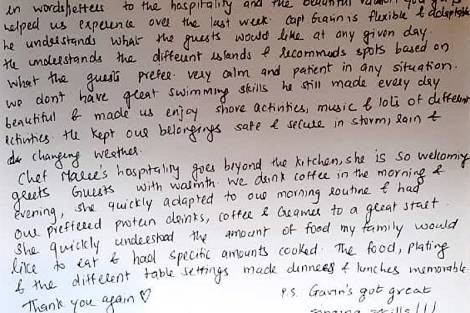 in words/letters to the hospitality and the beautiful vacation you guys
helped us experence over the last week. Capt Gavin is flexible & adaptable
he understands what the guests would like at any given day.
He understands the different islands & recommuds spots based on
what the guests prefer. very calm and patient in any situation.
we don't have great swimming skills he still made every day
beautiful & made us enjoy shore activities, music & lots of different
activities. He kept our belongings safe & secure in storm, rain &
changing weather.
Chef hospitality goes beyond the kitchen, she is so welcoming
greets Guests with warmth. We drink coffee in the morning &
evening, she quickly adapted to our morning routine & had
our preffered protein drinks, coffee & creamer to a great start.
She quickly understood the amount of food my family would
like to eat & had specific amounts cooked. The food, plating
& the different table settings made dinners & lunches memorable
Thank you again ♡
P.S. Gavin's got great
skills (!)